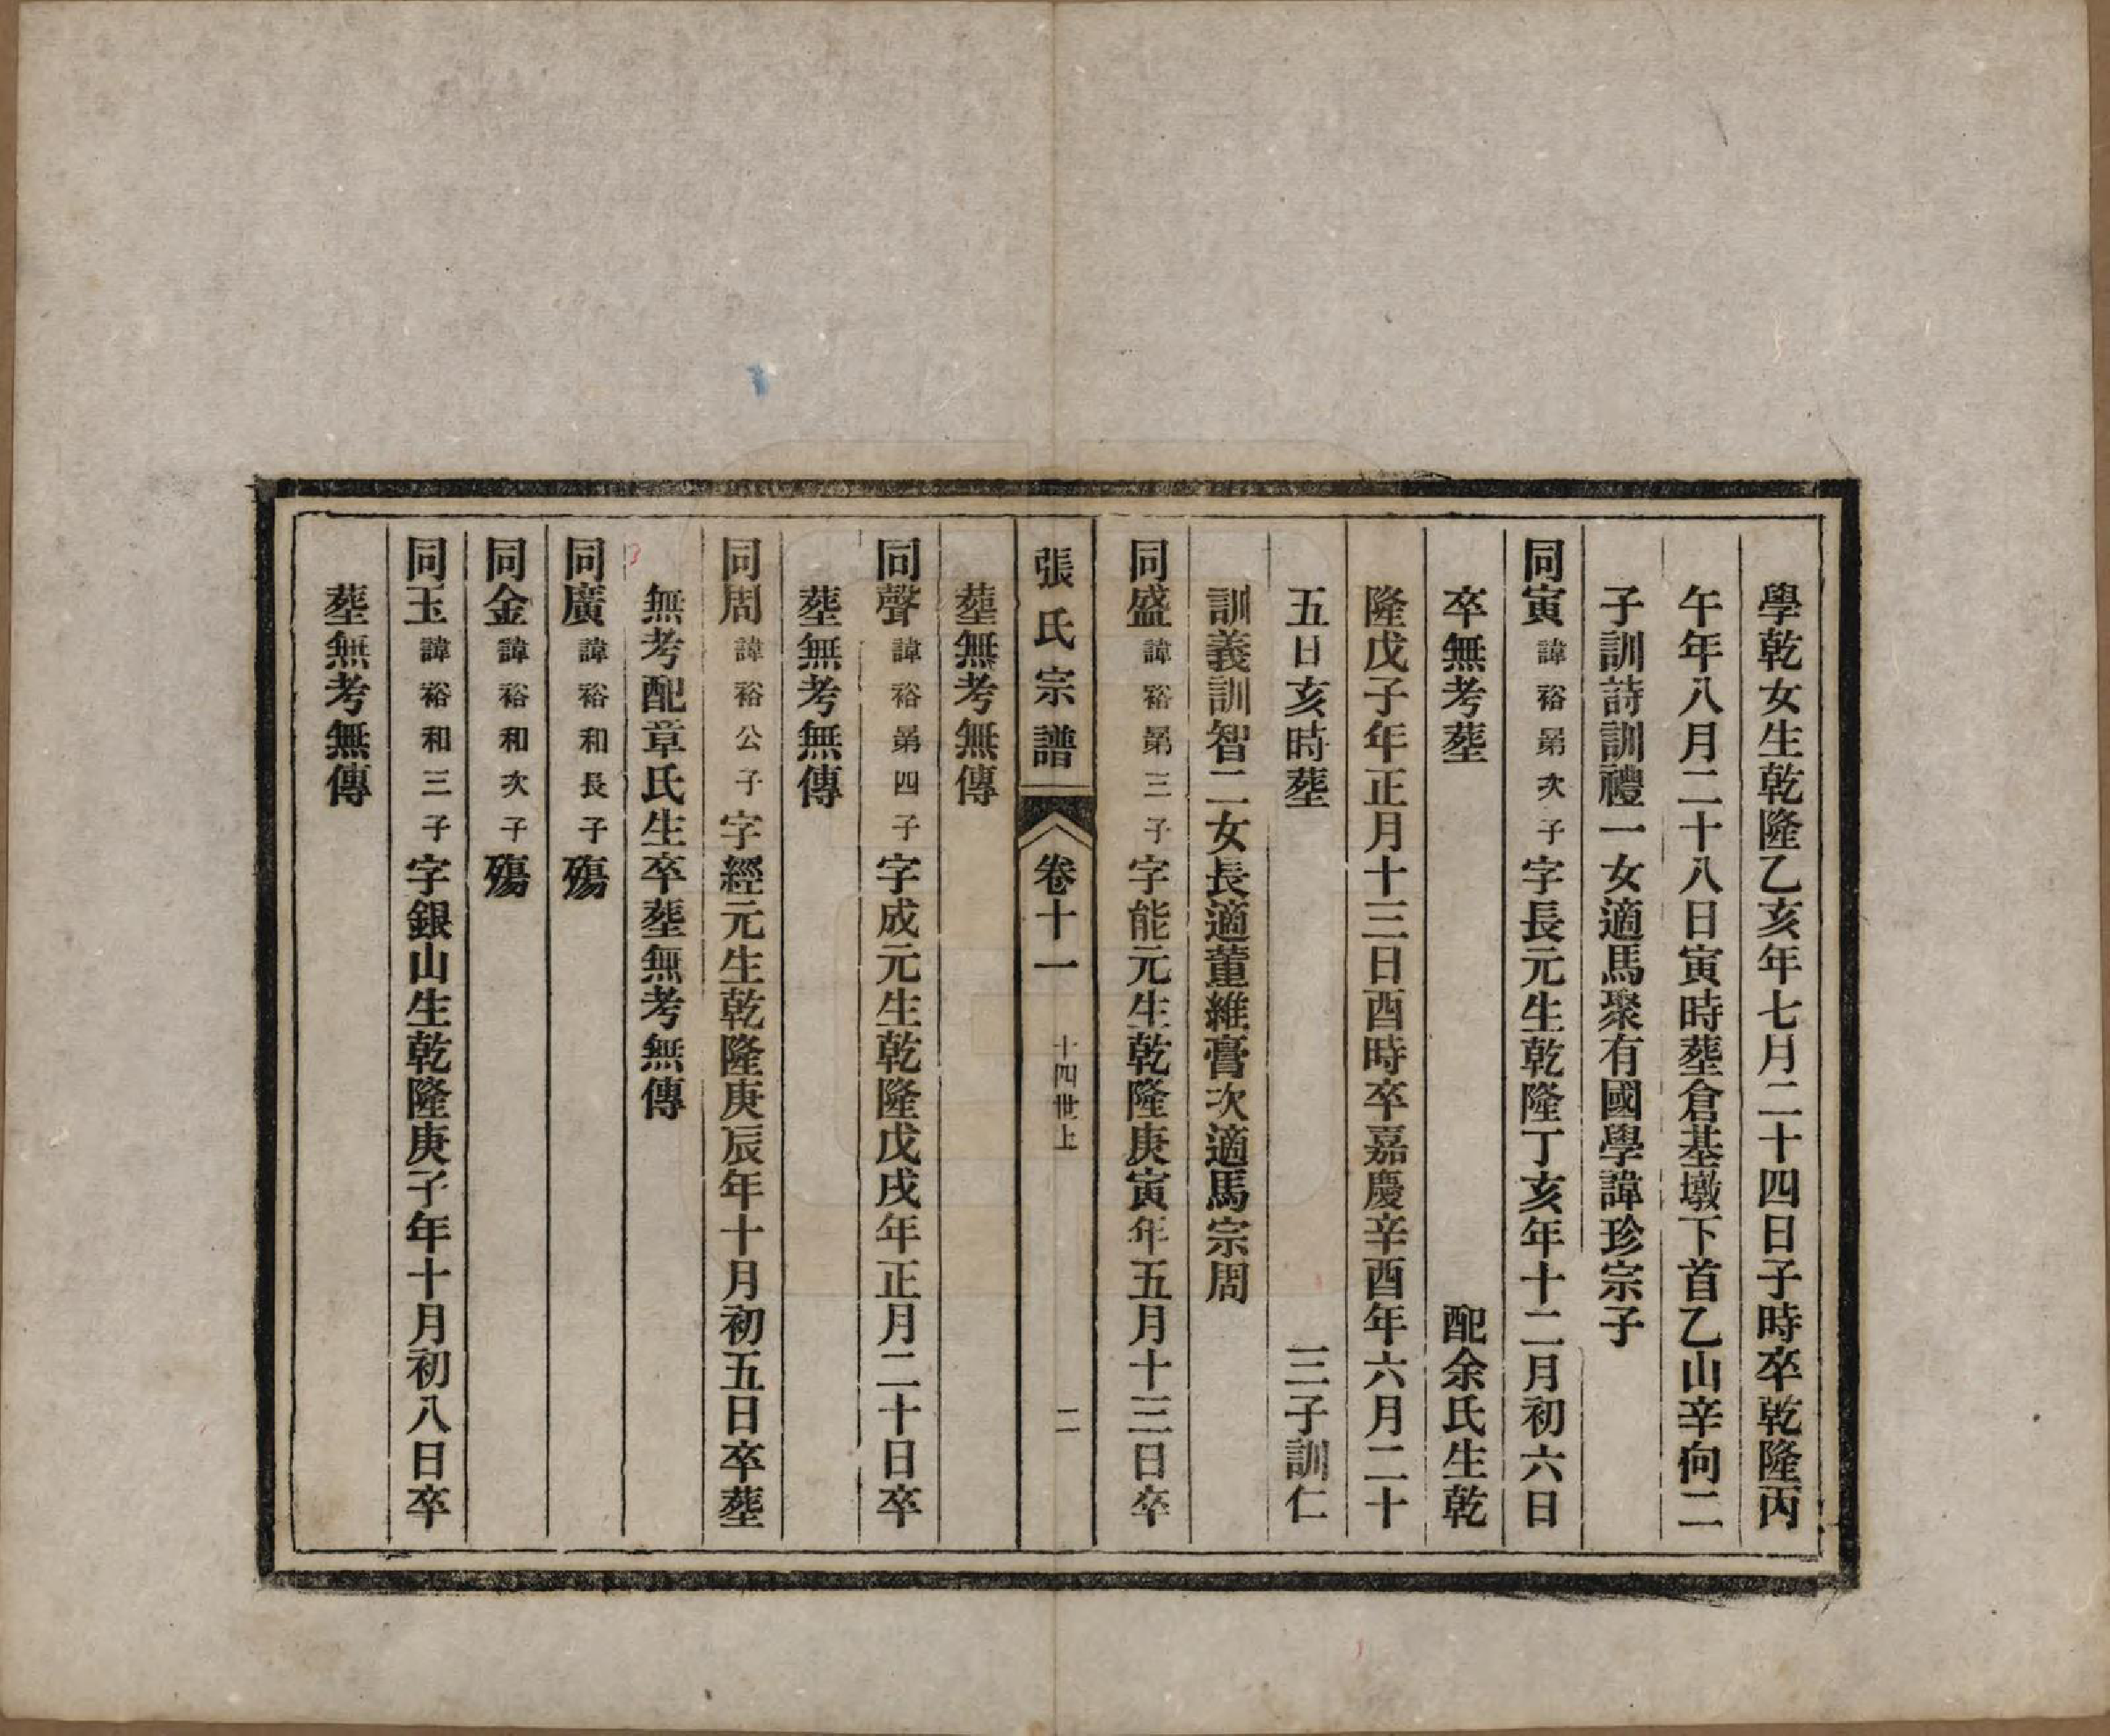 學乾女生乾隆乙亥年七月二十四日子時卒乾隆丙
午年八月二十八日寅時葬倉基墩下首乙山辛向二
子訓詩訓禮一女適馬聚有國學諱珍宗子
同寅諱裕第次子字長元生乾隆丁亥年十二月初六日
卒無考葬 配余氏生乾
隆戊子年正月十三日酉時卒嘉慶辛酉年六月二十
五日亥時葬 三子訓仁
訓義訓智二女長適董維膏次適馬宗周
同盛諱裕第三子字能元生乾隆庚寅年五月十三日卒
葬無考無傳
張氏宗譜 卷十一 十四世上 二
同聲諱裕第四子字成元生乾隆戊戌年正月二十日卒
葬無考無傳
同周諱裕公子字經元生乾隆庚辰年十月初五日卒葬
無考配章氏生卒葬無考無傳
同廣諱裕和長子殤
同金諱裕和次子殤
同玉諱裕和三子字銀山生乾隆庚子年十月初八日卒
葬無考無傳